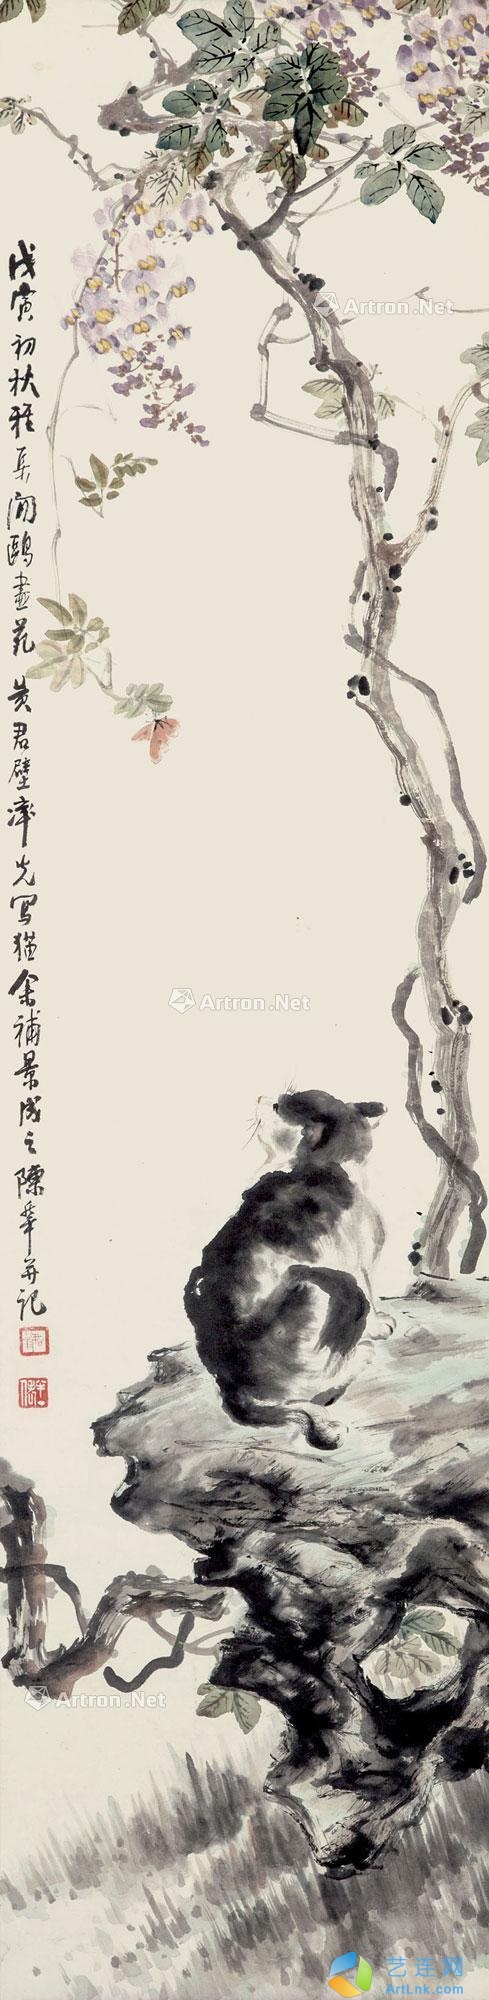 戊寅初秋雅集闲鸥画苑 黄君璧率光写猫余補景成之 陳年并记
Artron.Net
Artron.Net
Artron.Net
艺连网
ArtLnk.com